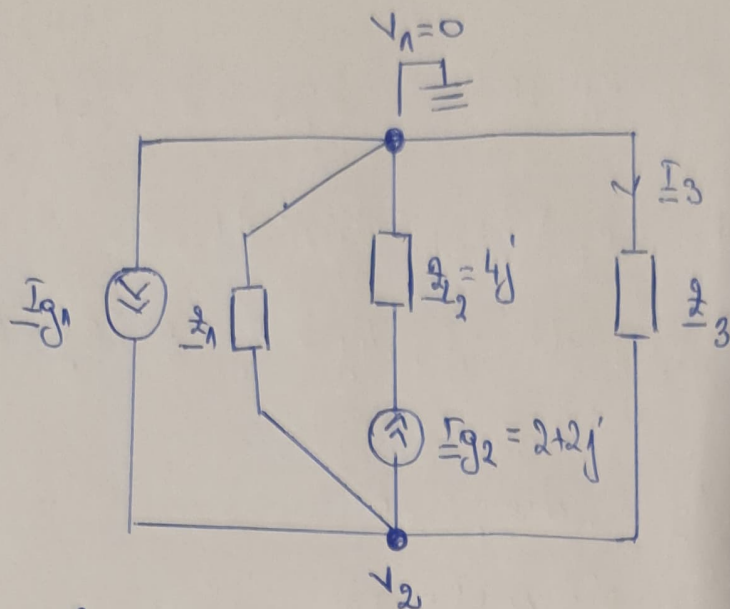 V1=0
I3
Ig1
Z1
Z2=4j
Z3
Ig2=2+2j
V2